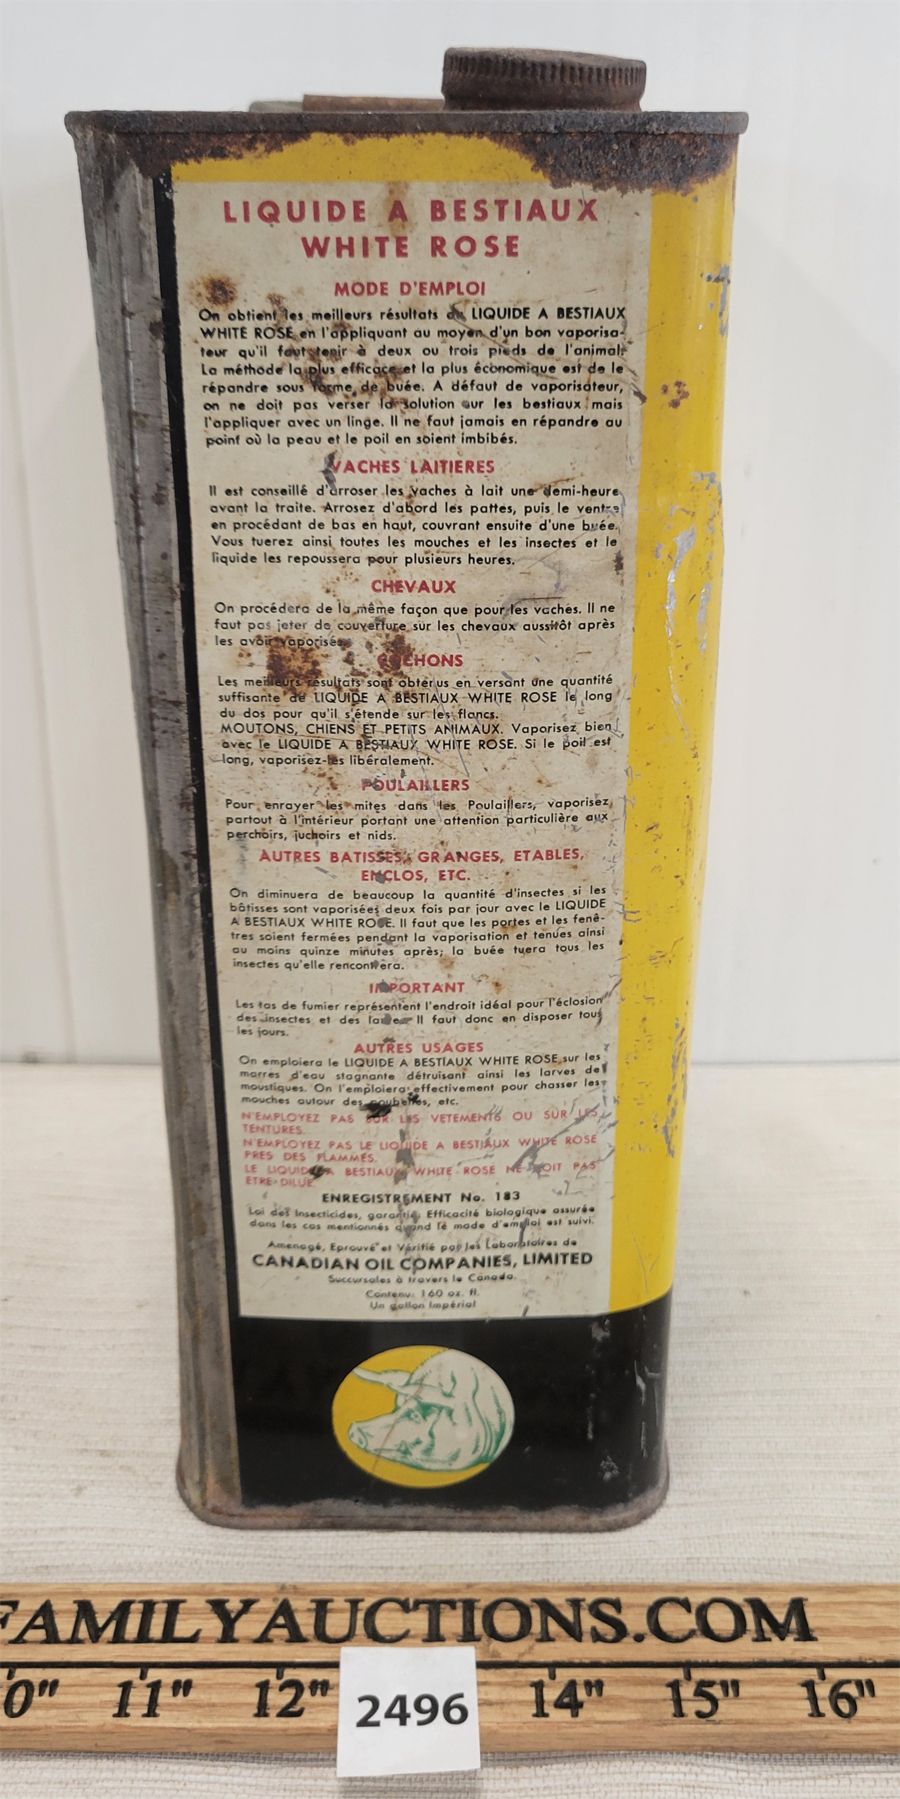 LIQUIDE A BESTIAUX
WHITE ROSE
MODE D'EMPLOI
On obtient les meilleurs résultats du LIQUIDE A BESTIAUX
WHITE ROSE en l'appliquant au moyen d'un bon vaporisa-
teur qu'il faut tenir à deux ou trois pieds de l'animal.
La méthode la plus efficace et la plus économique est de le
répandre sous forme de buée. A défaut de vaporisateur,
on ne doit pas verser la solution sur les bestiaux mais
l'appliquer avec un linge. Il ne faut jamais en répandre au
point où la peau et le poil en soient imbibés.
VACHES LAITIERES
Il est conseillé d'arroser les vaches à lait une demi-heure
avant la traite. Arrosez d'abord les pattes, puis le ventre
en procédant de bas en haut, couvrant ensuite d'une buée.
Vous tuerez ainsi toutes les mouches et les insectes et le
liquide les repoussera pour plusieurs heures.
CHEVAUX
On procédera de la même façon que pour les vaches. Il ne
faut pas jeter de couverture sur les chevaux aussitôt après
les avoir vaporisés.
COCHONS
Les meilleurs résultats sont obtenus en versant une quantité
suffisante de LIQUIDE A BESTIAUX WHITE ROSE le long
du dos pour qu'il s'étende sur les flancs.
MOUTONS, CHIENS ET PETITS ANIMAUX. Vaporisez bien
avec le LIQUIDE A BESTIAUX WHITE ROSE. Si le poil est
long, vaporisez-les libéralement.
POULAILLERS
Pour enrayer les mites dans les Poulaillers, vaporisez
partout à l'intérieur portant une attention particulière aux
perchoirs, juchoirs et nids.
AUTRES BATISSES, GRANGES, ETABLES,
ENCLOS, ETC.
On diminuera de beaucoup la quantité d'insectes si les
bâtisses sont vaporisées deux fois par jour avec le LIQUIDE
A BESTIAUX WHITE ROSE. Il faut que les portes et les fenê-
tres soient fermées pendant la vaporisation et tenues ainsi
au moins quinze minutes après; la buée tuera tous les
insectes qu'elle rencontrera.
IMPORTANT
Les tas de fumier représentent l'endroit idéal pour l'éclosion
des insectes et des Il faut donc en disposer tous
les jours.
AUTRES USAGES
On emploiera le LIQUIDE A BESTIAUX WHITE ROSE sur les
marres d'eau stagnante détruisant ainsi les larves de
moustiques. On l'emploiera effectivement pour chasser les
mouches autour des poubelles, etc.
N'EMPLOYEZ PAS SUR LES VETEMENTS OU SUR LES
TENTURES.
N'EMPLOYEZ PAS LE LIQUIDE A BESTIAUX WHITE ROSE
PRES DES FLAMMES.
LE LIQUIDE A BESTIAUX WHITE ROSE NE DOIT PAS
ETRE DILUE.
ENREGISTREMENT No. 183
Loi des Insecticides, garantie: Efficacité biologique assurée
dans les cas mentionnés quand le mode d'emploi est suivi.
Amenagé, Eprouvé et Vérifié par les Laboratoires de
CANADIAN OIL COMPANIES, LIMITED
Succursales à travers le Canada.
Contenu: 160 oz. fl.
Un gallon Impérial
FAMILYAUCTIONS.COM
0" 11" 12" 14" 15" 16"
2496